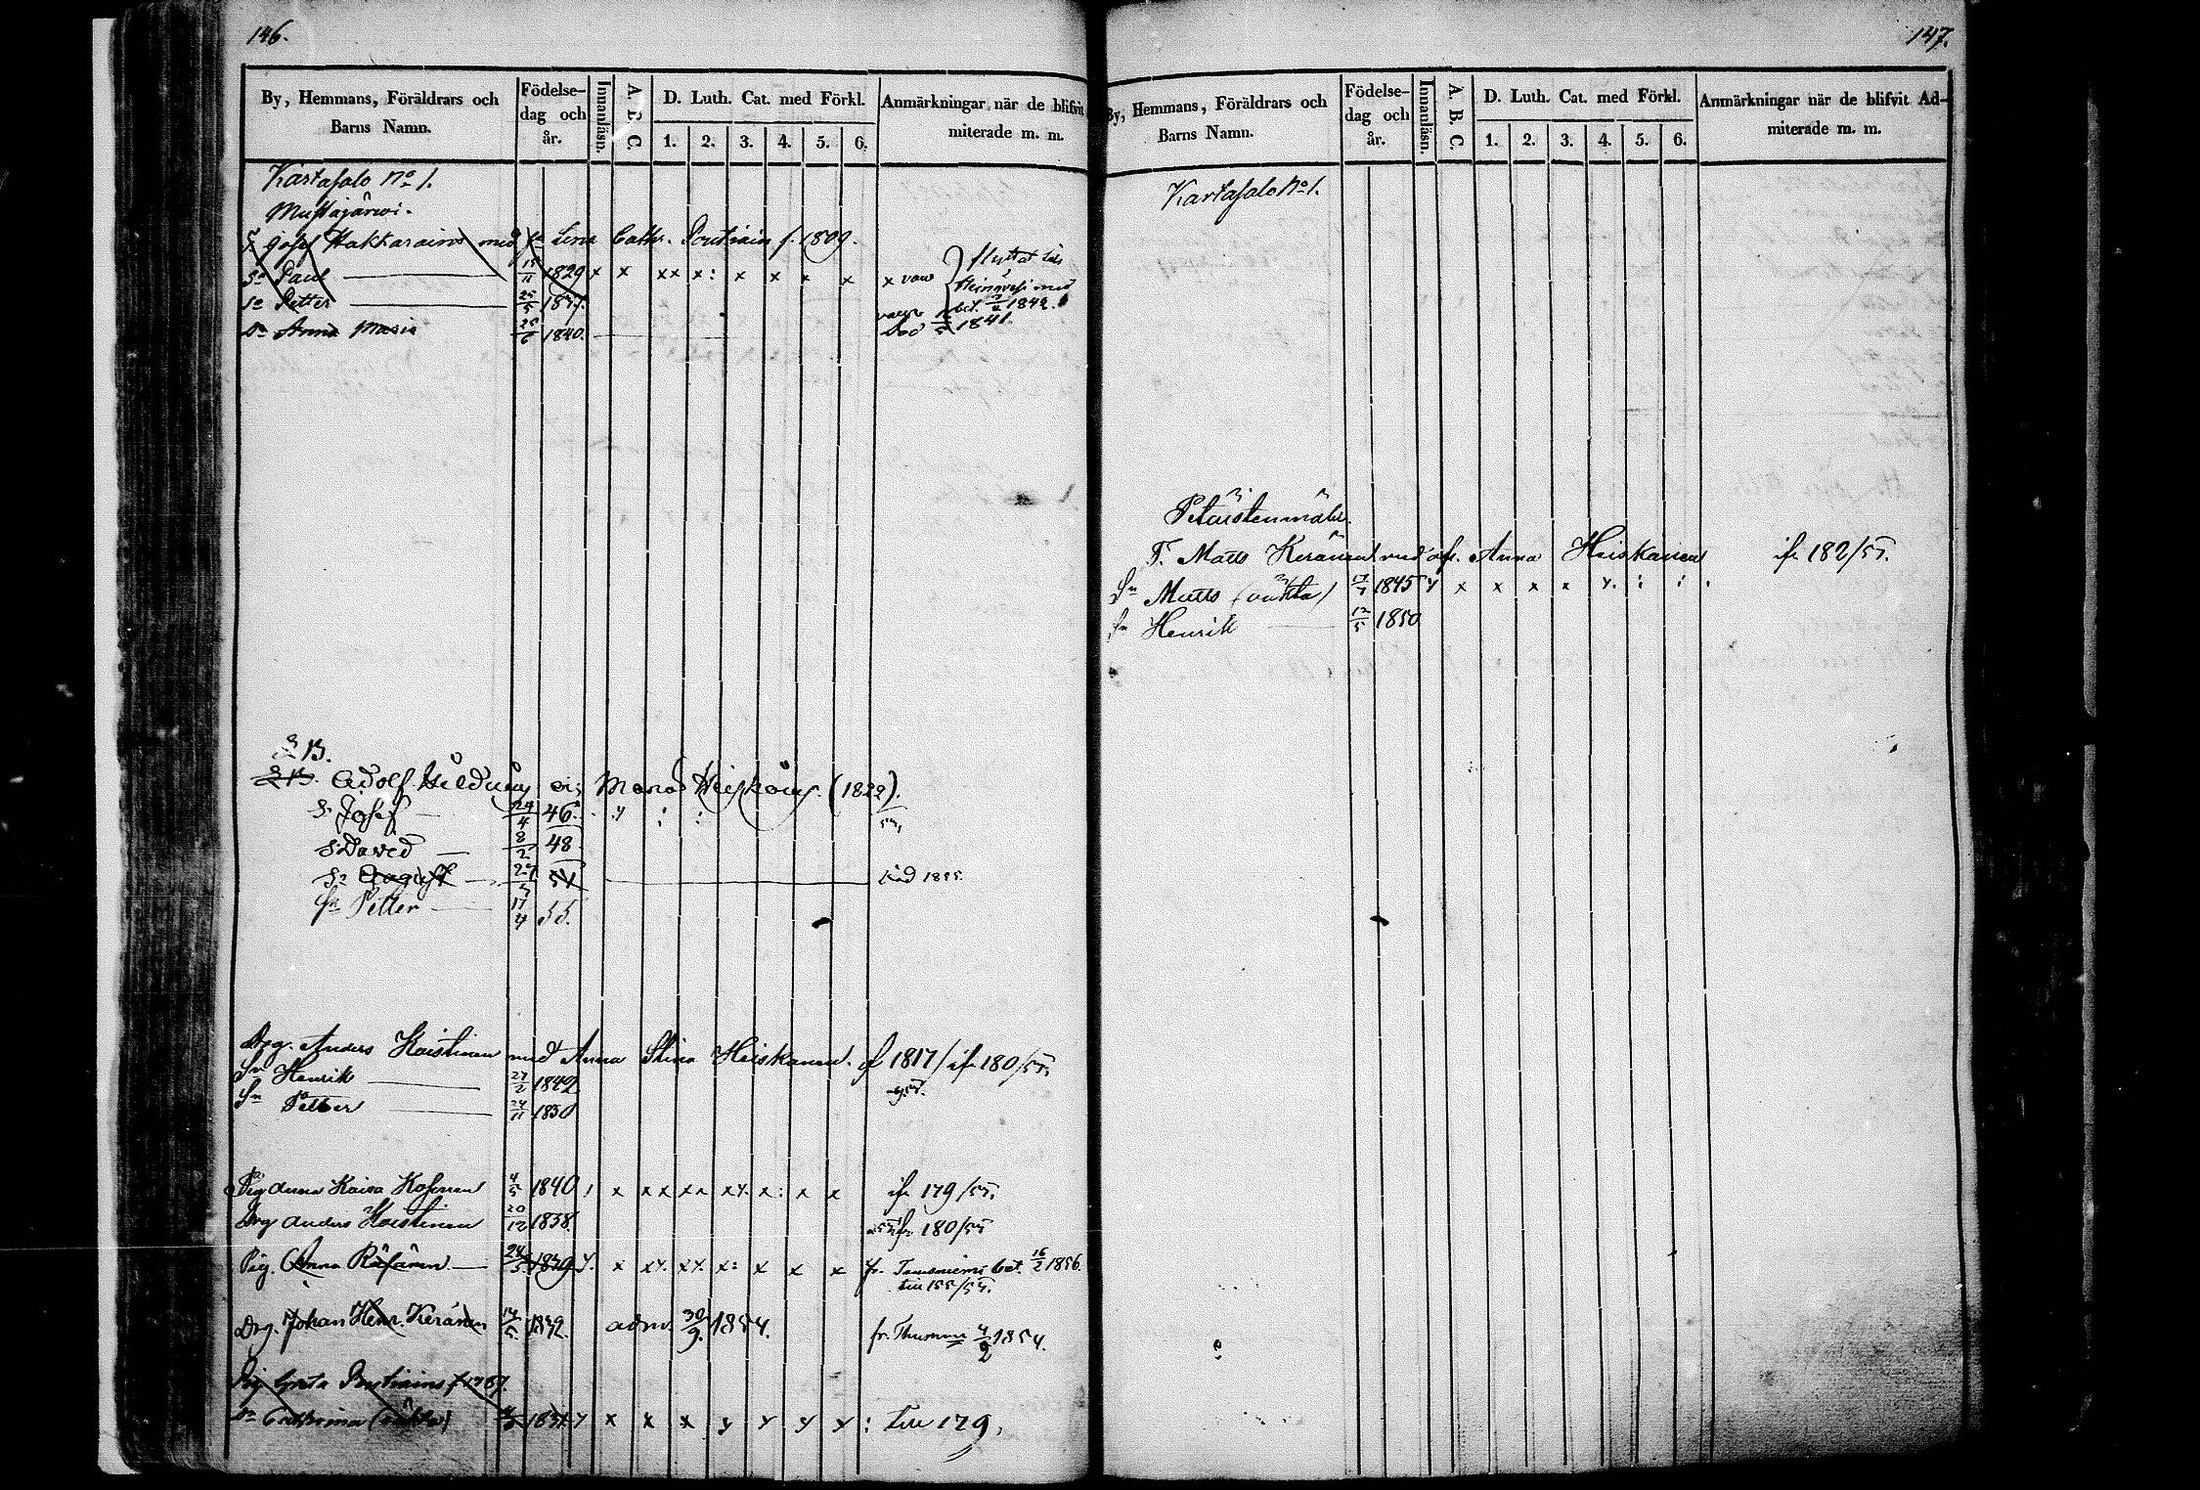 146.
By, Hemmans, Föräldrars och Barns Namn. Födelse-dag och år. Innanläsn. A. B. C. D. Luth. Cat. med Förkl. 1. 2. 3. 4. 5. 6. Anmärkningar när de blifvit miterade m. m.
Kartasalo No 1.
Mustajärwi.
T. Josef Hakkarain med h. Lena Cathr. Poutiain f. 1809.
Sn Paul 15/11 1829 x x xx x: x x x x x
flyttat
Heinävesi med
bet. 1842.
Sn Petter 25/5 1837.
Dr Anna Maria 25/6 1840. Död 1841.
2 B.
Adolf Maria Heiskain (1822).
S. Josef 24/4 46.
S. David 8/2 48
Sn August 27 51 död 1855.
Sn Petter 17/4 55.
Drg. Anders Koistinen med Anna Stina Heiskanen f 1817/ ifr 180/55.
Sn Henrik 27/2 1842
Sn Petter 24/11 1850
Pig Anna Kaisa Kosonen 4/5 1840 ifr 179/55.
Drg Anders Koistinen 20/12 1838 ifr 180/55
Pig. Anna Räsänen 24/5 1839 fr. bet. 16/2 1856.
till 155/55.
Drg. Johan Henr. Keränen 14/5 1832. adm. 30/9 1854. fr. 4/2 1854.
Pig Greta Poutiain f 1787.
Dr Cathrina (oäkta) 1834 till 179.
147.
By, Hemmans, Föräldrars och Barns Namn. Födelse-dag och år. Innanläsn. A. B. C. D. Luth. Cat. med Förkl. 1. 2. 3. 4. 5. 6. Anmärkningar när de blifvit Ad-miterade m. m.
Kartasalo No 1.
T. Matts Keränen med Anna Heiskanen ifr 182/55.
Sn Matts (oäkta) 1845
Sn Henrik 12/5 1850